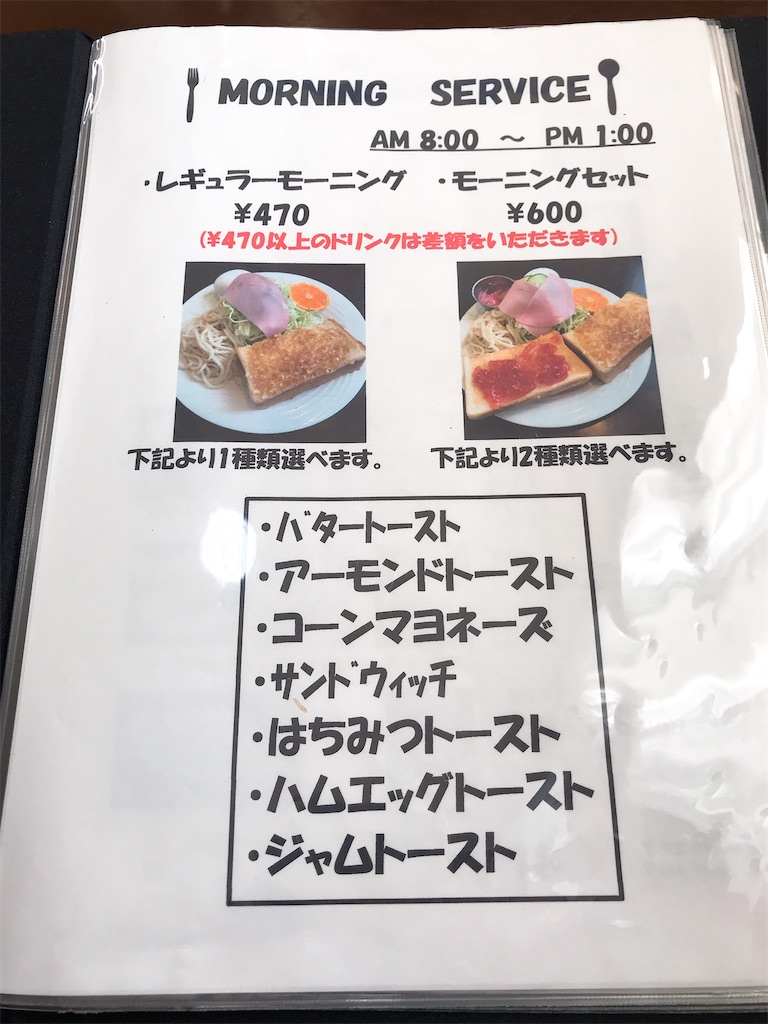 MORNING SERVICE
AM 8:00 ～ PM 1:00
・レギュラーモーニング ・モーニングセット
¥470 ¥600
(¥470以上のドリンクは差額をいただきます)
下記より1種類選べます。 下記より2種類選べます。
・バタートースト
・アーモンドトースト
・コーンマヨネーズ
・サンドウィッチ
・はちみつトースト
・ハムエッグトースト
・ジャムトースト